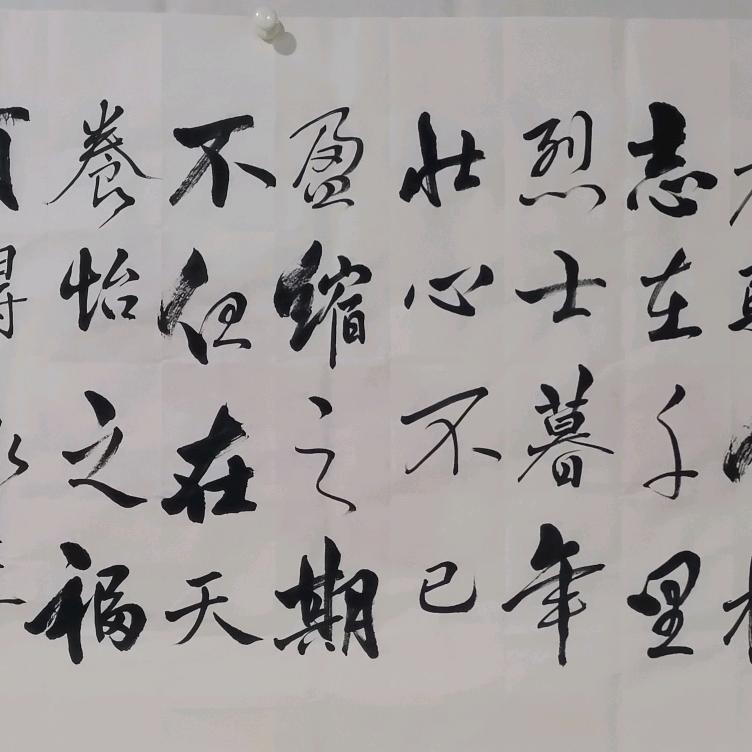 志在千里
烈士暮年
壮心不已
盈缩之期
不但在天
養怡之福